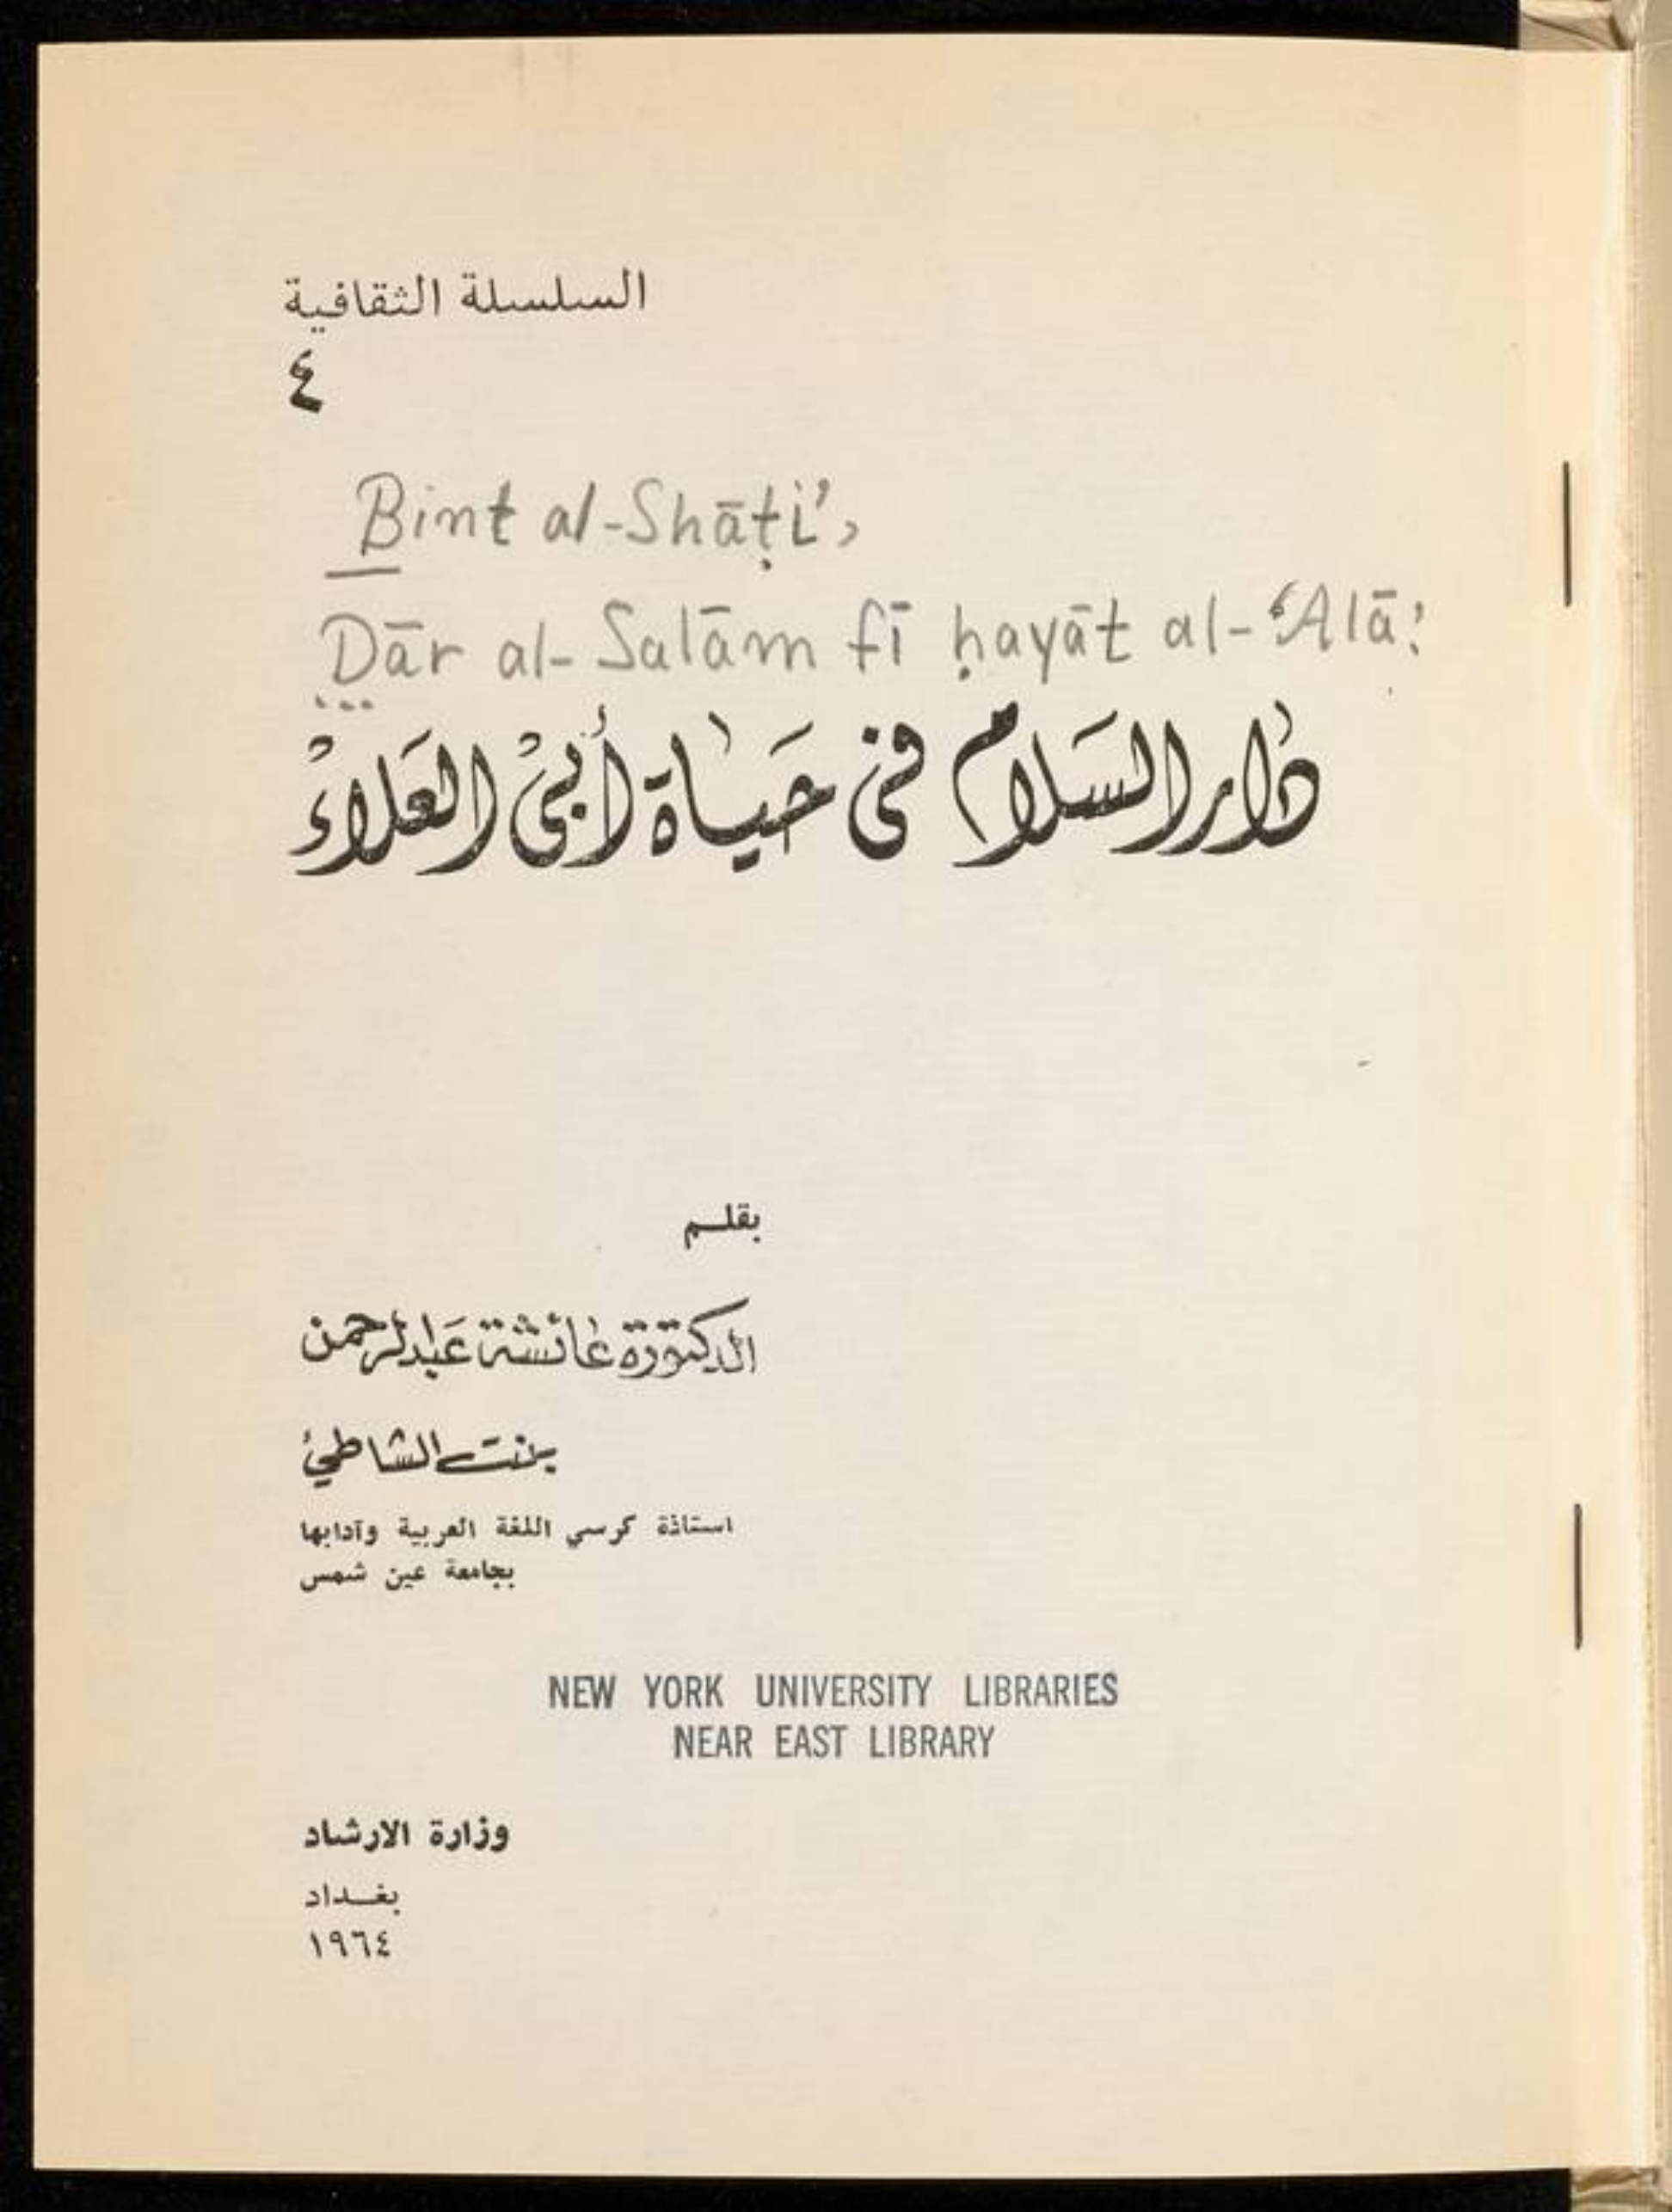 السلسلة الثقافية
٤
Bint al-Shāṭi',
Dār al-Salām fī ḥayāt al-‘Alā'
دار السلام في حياة أبي العلاء
بقلم
الدكتورة عائشة عبد الرحمن
بنت الشاطئ
استاذة كرسي اللغة العربية وآدابها
بجامعة عين شمس
NEW YORK UNIVERSITY LIBRARIES
NEAR EAST LIBRARY
وزارة الارشاد
بغداد
١٩٦٤